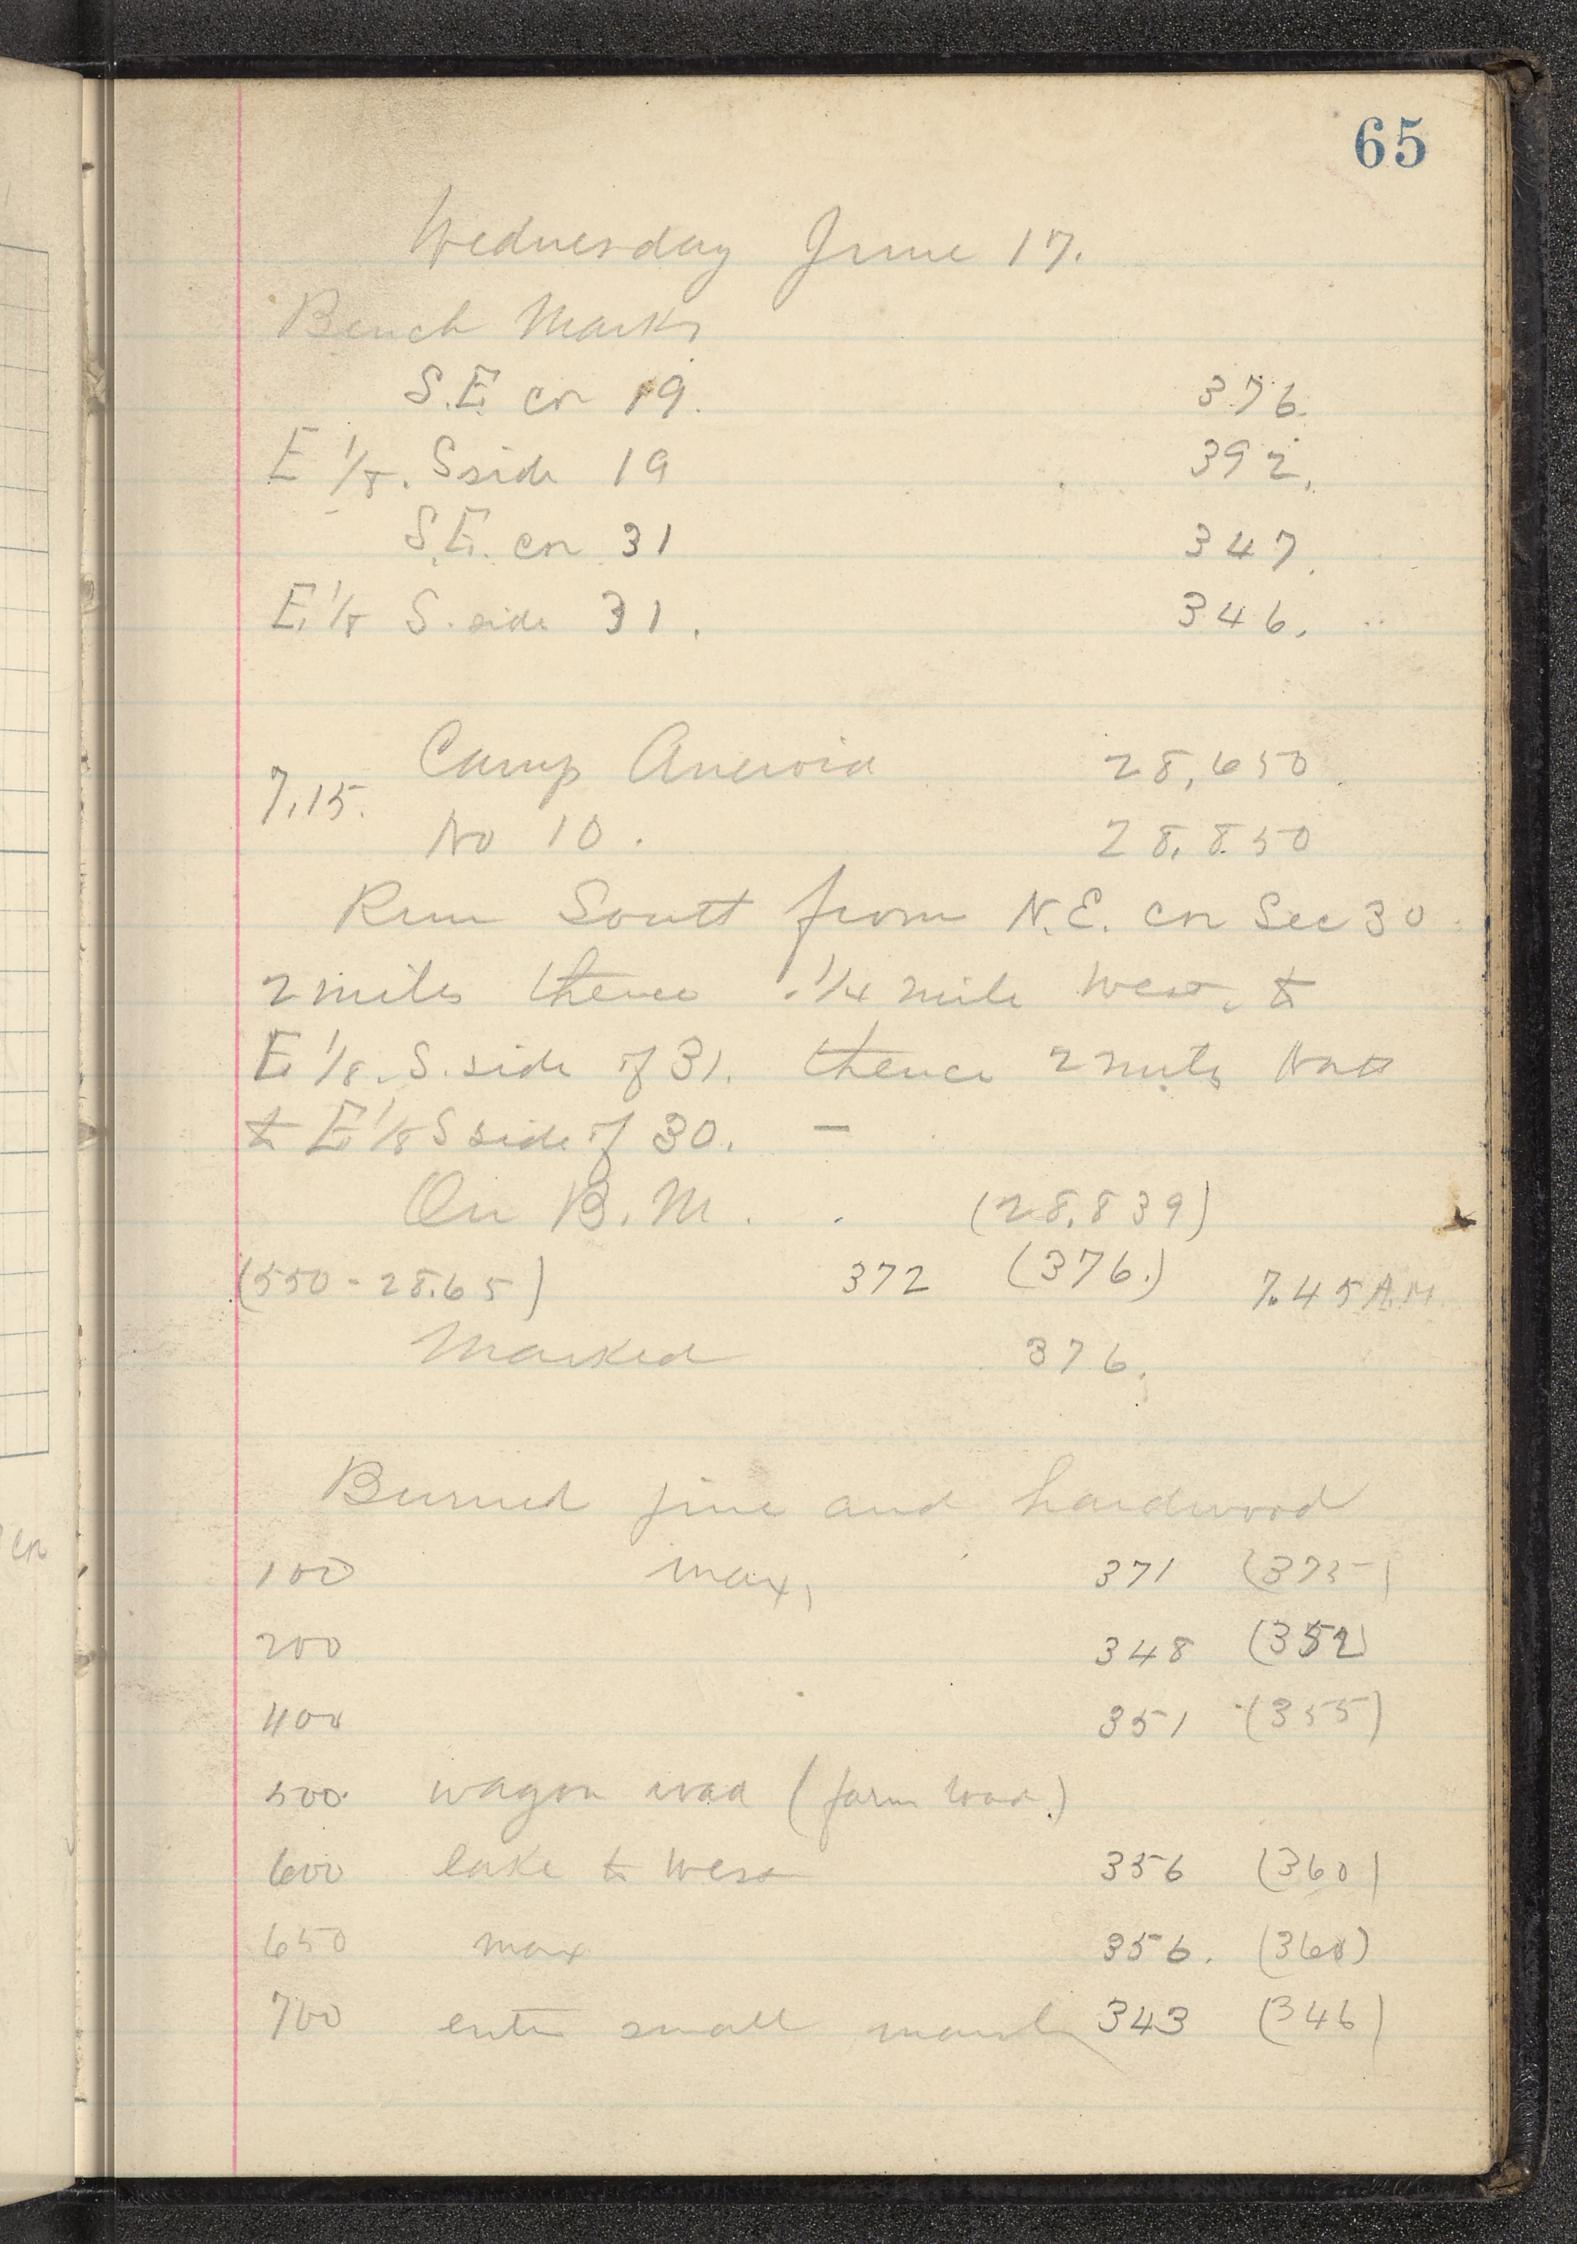 65
Wednesday June 17.
Bench Marks
S.E. cn 19. 376.
E 1/8. S side 19 392.
S.E. cn 31 347.
E. 1/8 S. side 31. 346.
Camp Aneroid 28,650.
7.15.
No 10. 28.850
Run South from N.E. cn Sec 30
2 miles thence 1/4 mile West, to
E 1/8. S. side of 31. thence 2 miles North
to E 1/8 S side of 30. —
On B.M. . (28.839)
(550 - 28.65) 372 (376.) 7.45 A.M.
Marked 376.
Burned pine and hardwood
100 max, 371 (375)
200 348 (352)
400 351 (355)
500. wagon road (farm road.)
600 lake to West 356 (360)
650 max 356. (360)
700 enter small marsh 343 (346)
cn